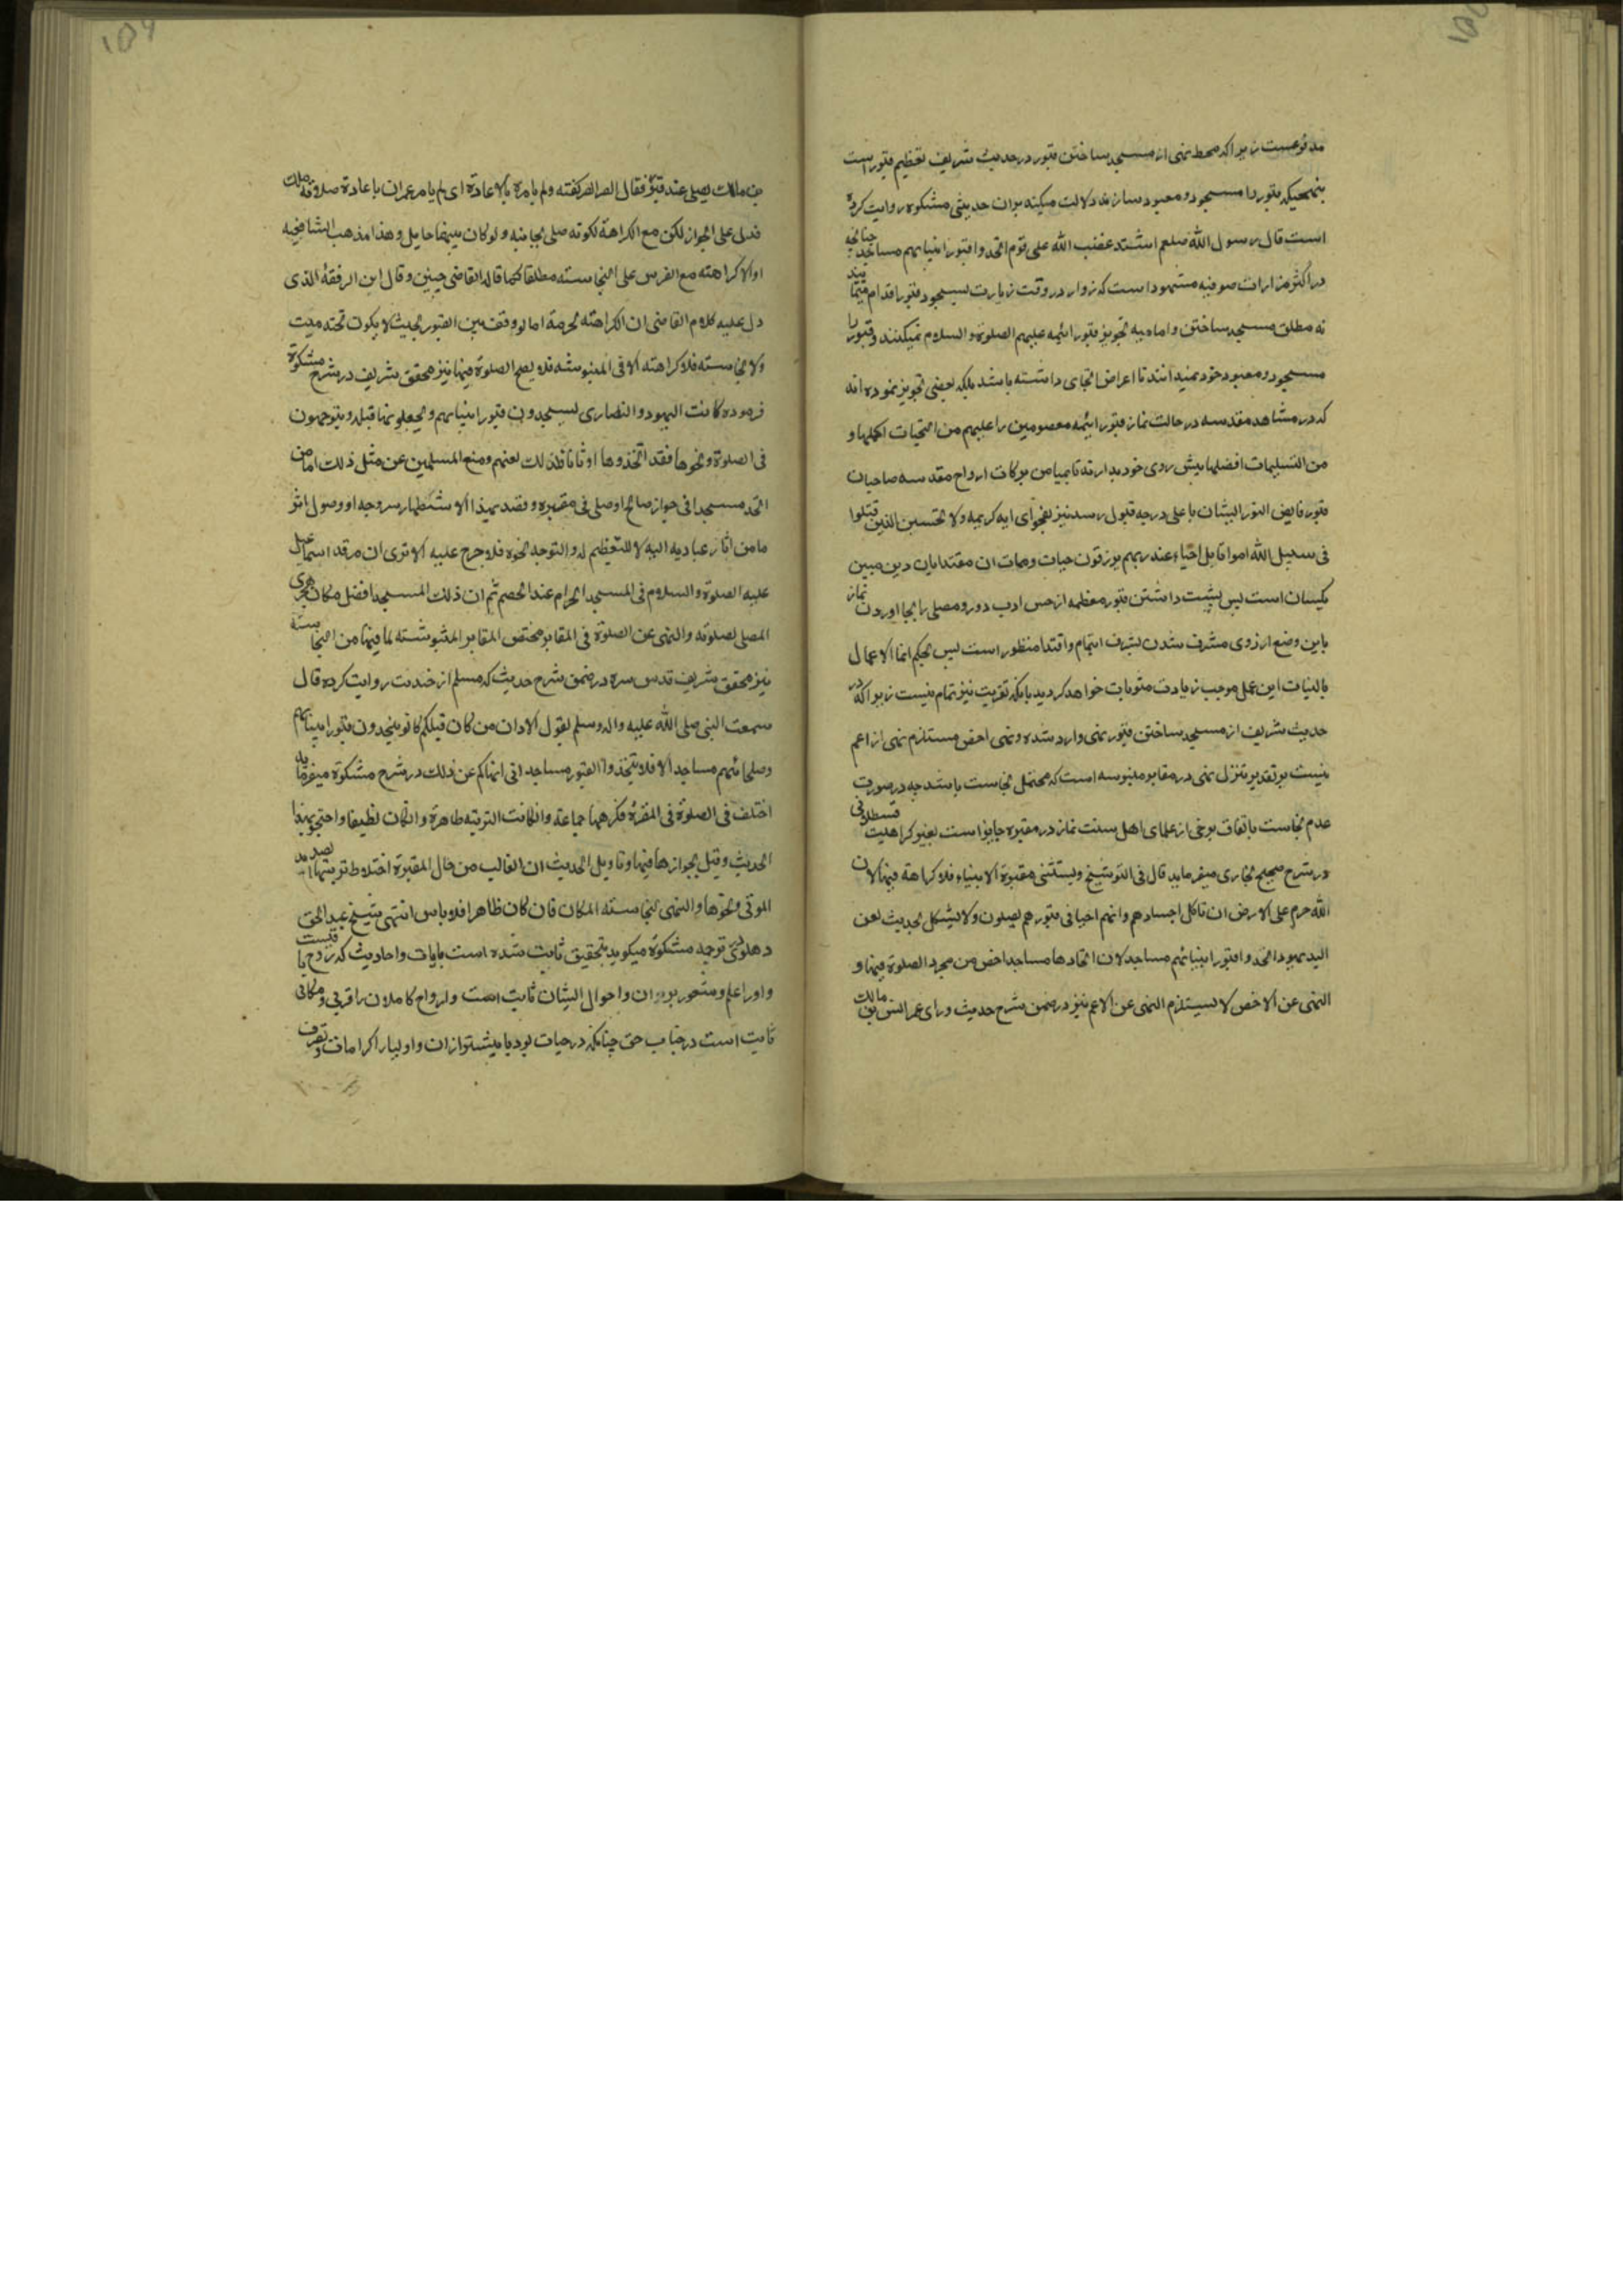 مدفوعست زیراکه محط نهی از مسجد ساختن قبور در حدیث شریف تعظیم قبور است
بنهجیکه قبور را مسجود و معبود سازند دلالت میکند بران حدیثی مشکوه روایت کرده
است قال رسول الله صلعم اشتد غضب الله علی قوم اتخدوا قبور انبیایهم مساجد چنانچه
در اکثر مزارات صوفیه مشهود است که زوار در وقت زیارت بسجود قبور اقدام مینمایند
نه مطلق مسجد ساختن و امامیه تجویز قبور ائیمه علیهم الصلوة و السلام نمیکنند و قبور را
مسجود و معبود خود نمیدانند تا اعراض اتجای داشته باشد بلکه بعضی تجویز نموده اند
که در مشاهد مقدسه در حالت نماز قبور ائیمه معصومین را علیهم من التحیات اکملها و
من التسلیمات افضلها پیش روی خود بدارند تا بمیامن برکات ارواح مقدسه صاحبان
قبور فایض النور ایشان باعلی درجه قبول رسد نیز بفحوای ایه کریمه ولا تحسبن الذین قتلوا
فی سبیل الله امواتا بل احیاء عند ربهم یرزقون حیات و ممات ان مقتدایان دین مبین
یکسان است پس پشت داشتن قبور معظمه از حس ادب دور و مصلی را بجا اوردن نماز
باین وضع ارزوی مشرف شدن بشرف ایتمام و اقتدا منظور است پس بحکم انما الاعمال
بالنیات این عمل موجب زیادت مثوبات خواهد کردید بانکه تقریب نیز تمام نیست زیراکه در
حدیث شریف از مسجد ساختن قبور نهی وارد شده و نهی اخص مستلزم نهی از اعم
نیست بر تقدیر تنزل نهی در مقابر منبوسه است که محتمل نجاست باشد چه در صورت
عدم نجاست باتفاق برخی از علمای اهل سنت نماز در مقبره جایز است بغیر کراهیت قسطلانی
در شرح صحیح بخاری میفرماید قال فی التوشیخ و یستثنی مقبرة الانبیاء فلا کراهة فیها لان
الله حرم علی الارض ان تاکل اجسادهم و انهم احیا فی قبورهم یصلون و لا یشکل بحدیث لعن
الیهود اتخدوا قبور انبیائهم مساجد لان اتخادها مساجد اخص من مجرد الصلوة فیها و
النهی عن الاخص لا یستلزم النهی عن الاعم نیز در ضمن شرح حدیث و رای عمر انس بن مالک
بن مالک یصلی عند قبر فقال القبر القبر کفته و لم یامره بالاعادة ای لم یامر عمر ان باعادة صلاوته ملک
فدل علی الجواز لکن مع الکراهة لکونه صلی بجانبه و لو کان بینهما حایل و هذا مذهب الشافعیه
او الا کراهته مع الفرس علی النجاسته مطلقا کما قاله القاضی حسین و قال ابن الرفقة الذی
دل علیه کلام القاضی ان الکراهته لحرمة اما لو وقف بین القبور بحیث لا یکون تحته میت
ولا نجاسته فلا کراهته الا فی المنبوشه فلا یصلح الصلوة فیها نیز محقق شریف در شرح مشکوة
فرموده کانت الیهود و النصاری یسجدون قبور انبیایهم و یجعلونها قبله و یتوجهون
فی الصلوة و نحوها فقد اتخذوها اوثانا فلذلک لعنهم و منع المسلمین عن مثل ذلک اما من
اتخد مسجدا فی جوار صالح او صلی فی مقبره و قصد بهذا الاستظهار بروحه او وصول اثر
ما من اثار عبادیه الیه لا للتعظیم له و التوجه نحوه فلا حرج علیه الا تری ان مرقد اسماعیل
علیه الصلوة و السلام فی المسجد الحرام عند الحصم ثم ان ذلک المسجد افضل مکان یتحری
المصلی لصلوته و النهی عن الصلوة فی المقابر مختص المقابر المنبوشته لما فیها من النجاسته
نیز محقق شریف قدس سره در ضمن شرح حدیث که مسلم از جندب روایت کرده قال
سمعت النبی صلی الله علیه و اله وسلم یقول الا و ان من کان قبلکم کانو یتخدون قبور انبیائهم
و صلحائهم مساجد الا فلا یتخذوا القبور مساجد انی انهاکم عن ذلک در شرح مشکوة میفرماید
اختلف فی الصلوة فی المقبرة فکرهها جماعته و ان کانت التربته طاهرة و المکان نظیفا و احتجو بهذا
الحدیث و قیل بجوازها فیها و تاویل الحدیث ان الغالب من حال المقبرة اختلاط تربتها بصدید
الموتی و نحوها و النهی لنجاسته المکان فان کان طاهرا فلا باس انتهی شیخ عبد الحق
دهلوی در ترجمه مشکوة میکوید بتحقیق ثابت شده است بایات و احادیث که روح باقیست
و او را علم و شعور بزایران و احوال ایشان ثابت است و ارواح کاملان را قربی و مکانی
ثابت است در جناب حق چنانکه در حیات بود یا بیشتر ازان و اولیا را کرامات و تصرف